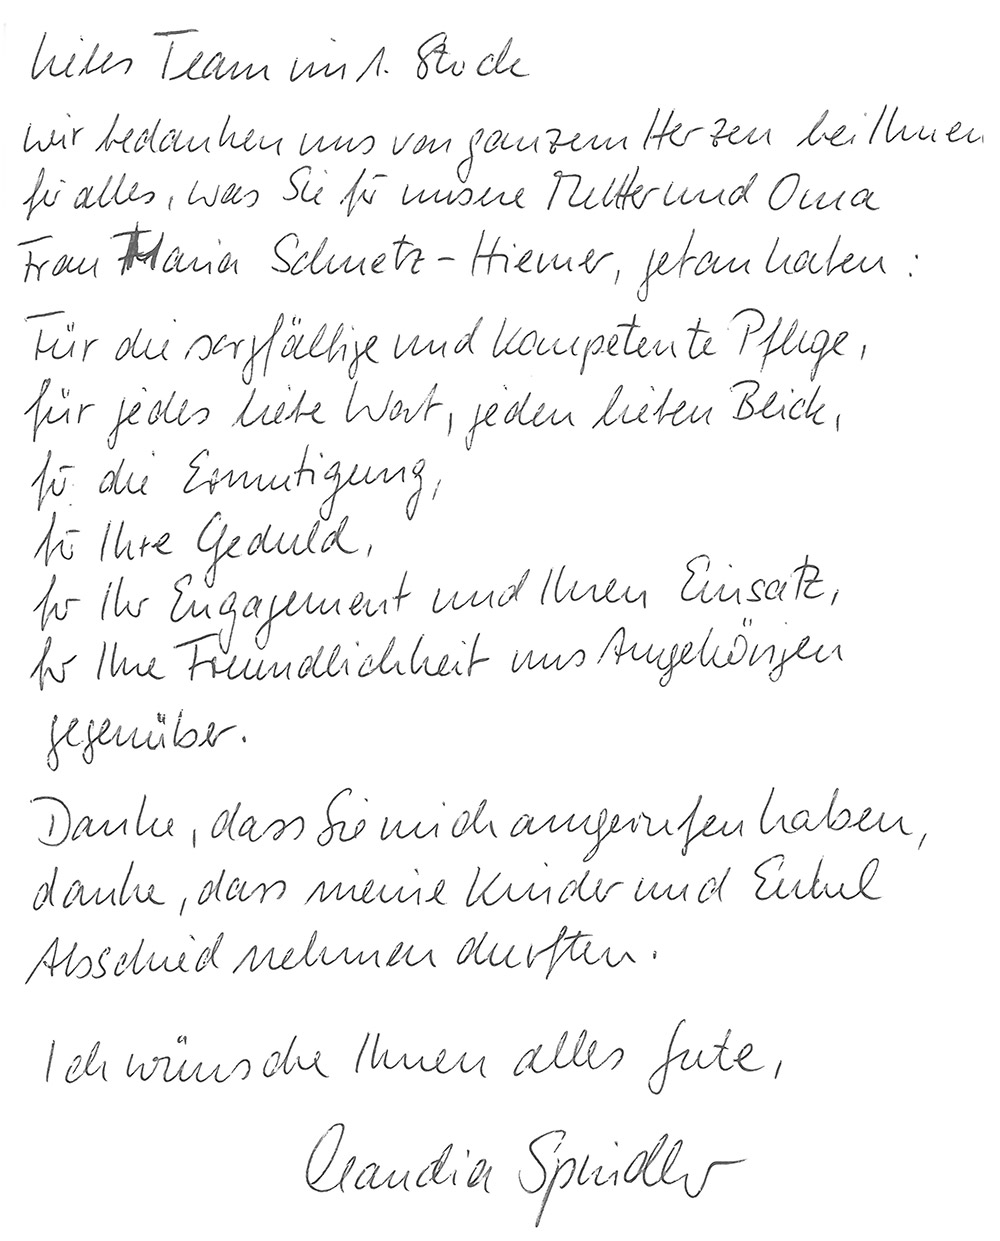 Liebes Team im 1. Stock
wir bedanken uns von ganzem Herzen bei Ihnen
für alles, was Sie für unsere Mutter und Oma
Frau Maria Schmetz-Hiemer, getan haben:
Für die sorgfältige und kompetente Pflege,
für jedes liebe Wort, jeden lieben Blick,
für die Ermutigung,
für Ihre Geduld,
für Ihr Engagement und Ihren Einsatz,
für Ihre Freundlichkeit uns Angehörigen
gegenüber.
Danke, dass Sie mich angerufen haben,
danke, dass meine Kinder und Enkel
Abschied nehmen durften.
Ich wünsche Ihnen alles Gute,
Claudia Spindler